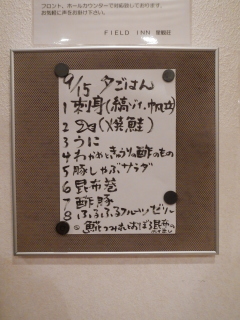 フロント、ホールカウンターで対応致しております。
お気軽に声をお掛け下さい。
FIELD INN
9/15 夕ごはん
1 刺身(縞ゾイ、帆立)
2 (焼鮭)
3 うに
4 わかめときゅうりの酢のもの
5 豚しゃぶサラダ
6 昆布巻
7 酢豚
8 ふるふるフルーツゼリー
つみれとおぼろ昆布の